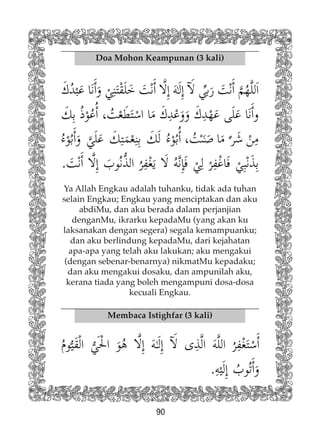 Doa Mohon Keampunan (3 kali)
اَللَّهُمَّ أَنْتَ رَبِّيْ لَآ إِلَهَ إِلَّا أَنْتَ خَلَقْتَنِيْ وَأَنَا عَبْدُكَ
وأَنَا عَلَى عَهْدِكَ وَوَعْدِكَ مَا اسْتَطَعْتُ، أَعُوْذُ بِكَ
مِنْ شَرِّ مَا صَنَعْتُ، أَبُوْءُ لَكَ بِنِعْمَتِكَ عَلَيَّ وَأَبُوْءُ
بِذَنْبِيْ فَاغْفِرْ لِيْ فَإِنَّهُ لَا يَغْفِرُ الذُّنُوبَ إِلَّا أَنْتَ.
Ya Allah Engkau adalah tuhanku, tidak ada tuhan
selain Engkau; Engkau yang menciptakan dan aku
abdiMu, dan aku berada dalam perjanjian
denganMu, ikrarku kepadaMu (yang akan ku
laksanakan dengan segera) segala kemampuanku;
dan aku berlindung kepadaMu, dari kejahatan
apa-apa yang telah aku lakukan; aku mengakui
(dengan sebenar-benarnya) nikmatMu kepadaku;
dan aku mengakui dosaku, dan ampunilah aku,
kerana tiada yang boleh mengampuni dosa-dosa
kecuali Engkau.
Membaca Istighfar (3 kali)
أَسْتَغْفِرُ اللهَ الَّذِى لَآ إِلَهَ إِلَّا هُوَ الْحَيُّ الْقَيُّومُ
وَأَتُوبُ إِلَيْهِ.
90